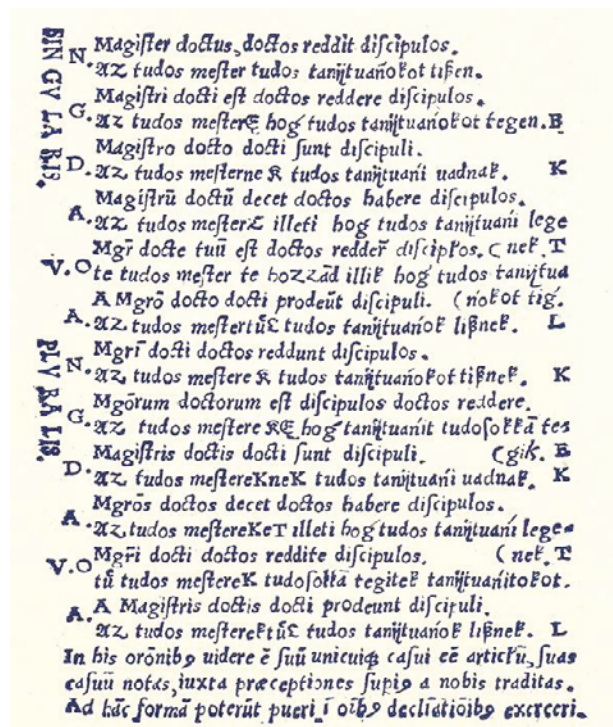 SINGULARIS.
N. Magiſter doctus, doctos reddit diſcipulos.
Az tudos meſter tudos tanijtuańokot tißen.
Magiſtri docti eſt doctos reddere diſcipulos.
G. Az tudos meſterE hoǵ tudos tanijtuańokot tegen. B
Magiſtro docto docti ſunt diſcipuli.
D. Az tudos meſterne K tudos tanijtuańi uadnak. K
Magiſtrū doctū decet doctos habere diſcipulos.
A. Az tudos meſterE illeti hog tudos tanijtuańi lege
Mgr̄ docte tuū eſt doctos redder̄ diſcipłos. (nek. T
V. O te tudos meſter te hozzād illik hoǵ tudos tanijtua
A Mgrō docto docti prodeūt diſcipuli. (ńokot tig.
A. Az tudos meſtertűl tudos tanijtuańok lißnek. L
PLURALIS.
Mgrī docti doctos reddunt diſcipulos.
N. Az tudos meſtere K tudos tanijtuańokot tißnek. K
Mgōrum doctorum eſt diſcipulos doctos reddere.
G. Az tudos meſtere KE hoǵ tanijtuańit tudoſokkā teg
Magiſtris doctis docti ſunt diſcipuli. (gik. B
D. Az tudos meſtereKneK tudos tanijtuańi uadnak. K
Mgrōs doctos decet doctos habere diſcipulos.
A. Az tudos meſtereKeT illeti hoǵ tudos tanijtuańi lege=
V. O Mgr̄i docti doctos reddite diſcipulos. (nek. T
tű tudos meſtereK tudoſokkā tegitek tanijtuańitokot.
A Magiſtris doctis docti prodeunt diſcipuli.
A. Az tudos meſterektűl tudos tanijtuańok lißnek. L
In his orōnibꝯ uidere ē ſuū unicuiqꝫ caſui eē articłū, ſuas
caſuū notas, iuxta præceptiones ſupiꝯ a nobis traditas.
Ad hāc formā poterūt pueri ī oībꝯ decliātiōibꝯ exerceri.